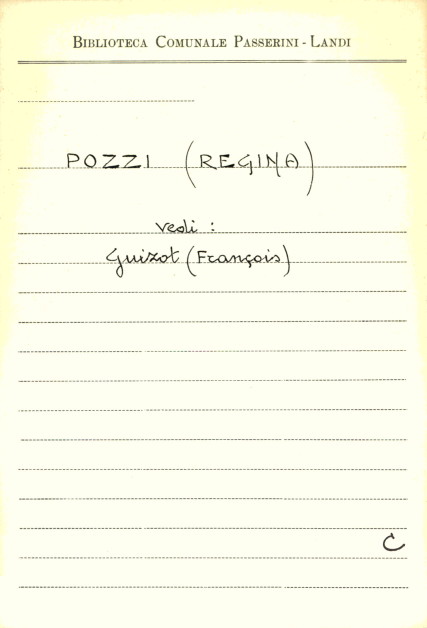 Biblioteca Comunale Passerini - Landi
POZZI (REGINA)
vedi :
Guizot (François)
C